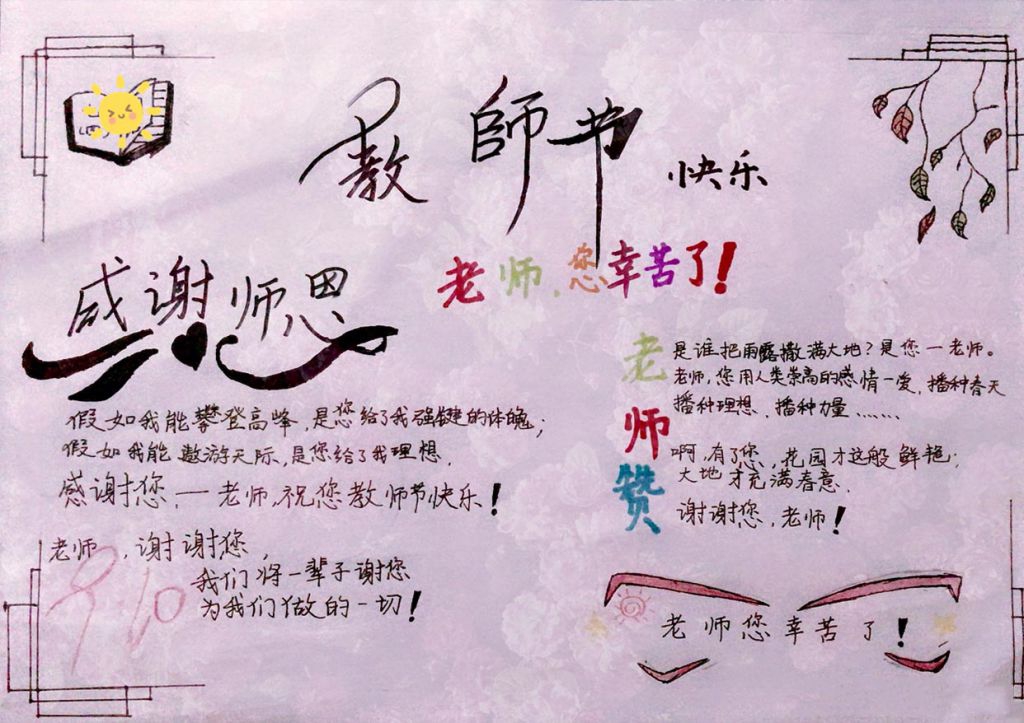 教師节
快乐
感谢师恩
老师,您幸苦了!
假如我能攀登高峰,是您给了我强健的体魄;
假如我能遨游天际,是您给了我理想,
感谢您——老师,祝您教师节快乐!
老师,谢谢您,
我们将一辈子谢您
为我们做的一切!
9.10
老师赞
是谁把雨露撒满大地?是您一老师。
老师,您用人类崇高的感情一爱,播种春天
播种理想,播种力量……
啊,有了您,花园才这般鲜艳;
大地才充满春意,
谢谢您,老师!
老师您幸苦了!